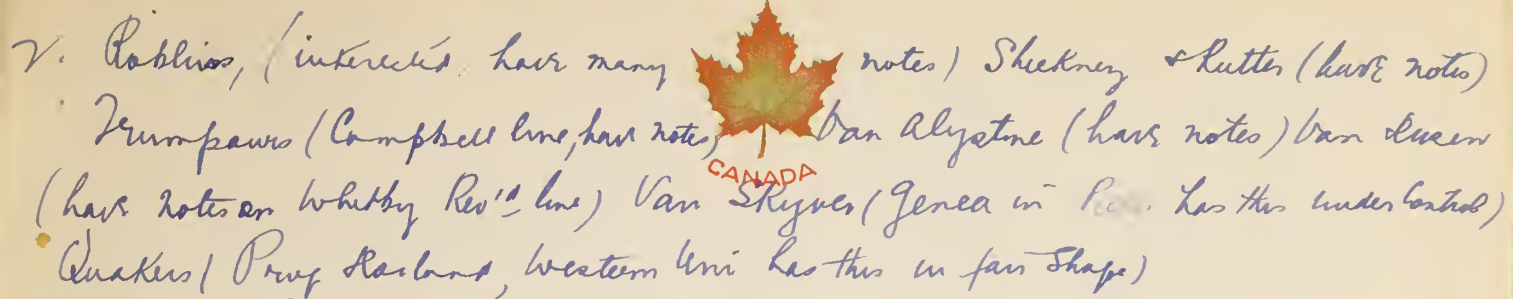 V. Roblins, (interested have many notes) Shuckney & Rutter (have notes)
Trumpours (Campbell line, have notes) Van Alystine (have notes) Van Dusen
CANADA
(have notes on Whitby Rev'd line) Van Skyver (Genea in has this under Control)
Quakers (Harland, Western Uni has this in fair shape)